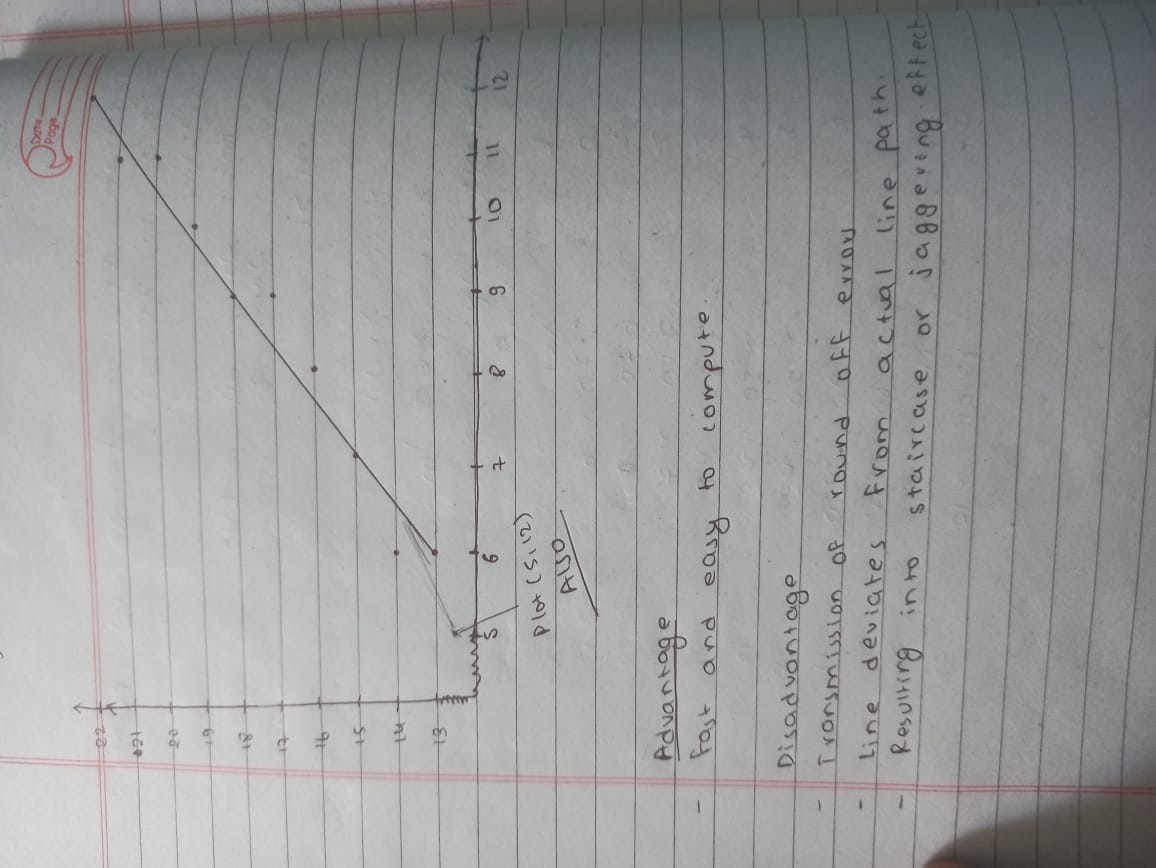 Date
Page
22
21
20
19
18
17
16
15
14
13
5 6 7 8 9 10 11 12
Plot (5,12)
Also
Advantage
- Fast and easy to compute.
Disadvantage
- Transmission of round off error
- Line deviates from actual line path.
- Resulting into staircase or jaggering effect.